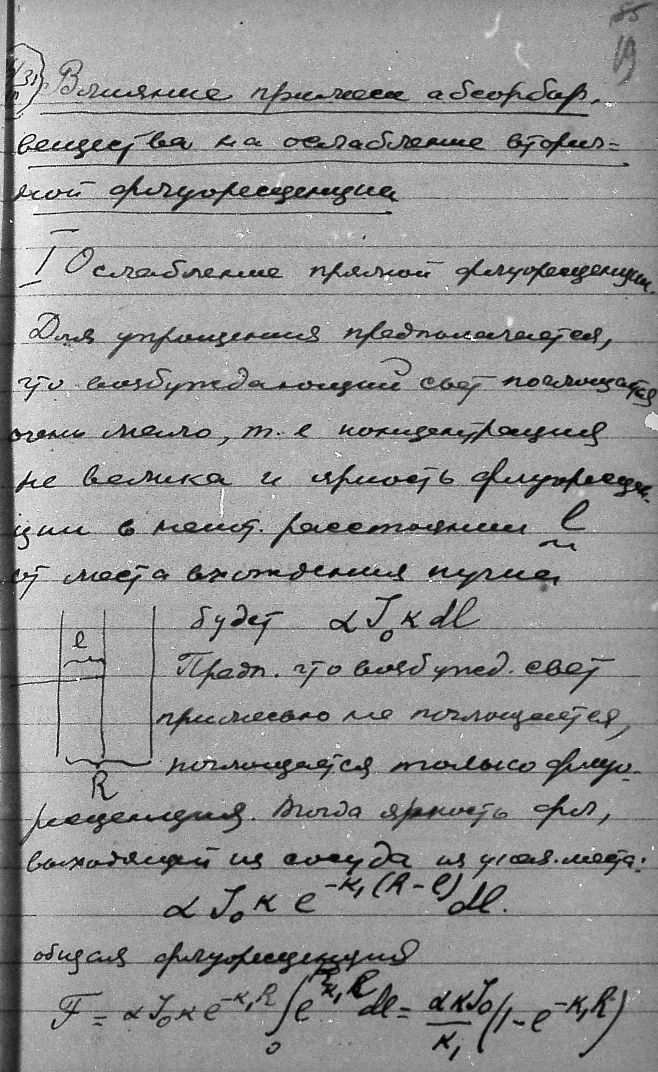 85
19
31
Влияние примеси абсорбир.
вещества на ослабление вторич-
ной флуоресценции
I Ослабление прямой флуоресценции.
Для упрощения предполагается,
что возбуждающий свет поглощается
очень мало, т.е концентрация
не велика и яркость флуоресцен-
ции в расстоянии l
от места вхождения пучка
будет αI₀κdl
l
Предп. что возбужд. свет
примесью не поглощается,
поглощается только флуо-
R
ресценция. Тогда яркость фл,
выходящей из сосуда из указ. места:
αI₀κe^{-κ₁(R-l)}dl.
общая флуоресценция
F = αI₀κe^{-κ₁R}∫₀^R e^{κ₁R}dl = ακI₀/κ₁ (1-e^{-κ₁R})